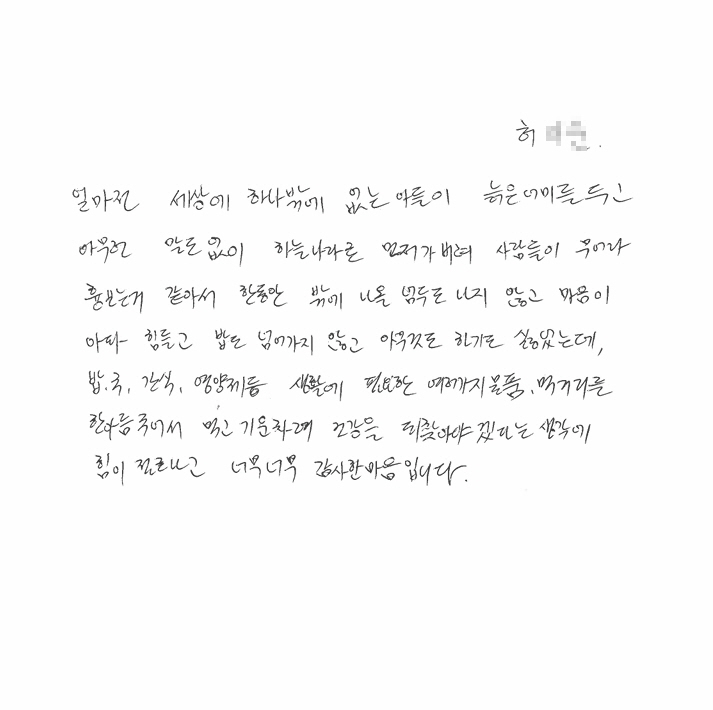 허
얼마전 세상에 하나밖에 없는 아들이 늙은 어미를 두고
아무런 말도없이 하늘나라로 먼저가버려 사람들이 무어라
흉보는거 같아서 한동안 밖에 나올 엄두도 나지 않고 마음이
아파 힘들고 밥도 넘어가지 않고 아무것도 하기도 싫었는데,
밥.국, 간식, 영양제등 생활에 필요한 여러가지물품.먹거리를
한아름주어서 먹고 기운차려 건강을 되찾아야 겠다는 생각에
힘이 절로나고 너무너무 감사한마음입니다.